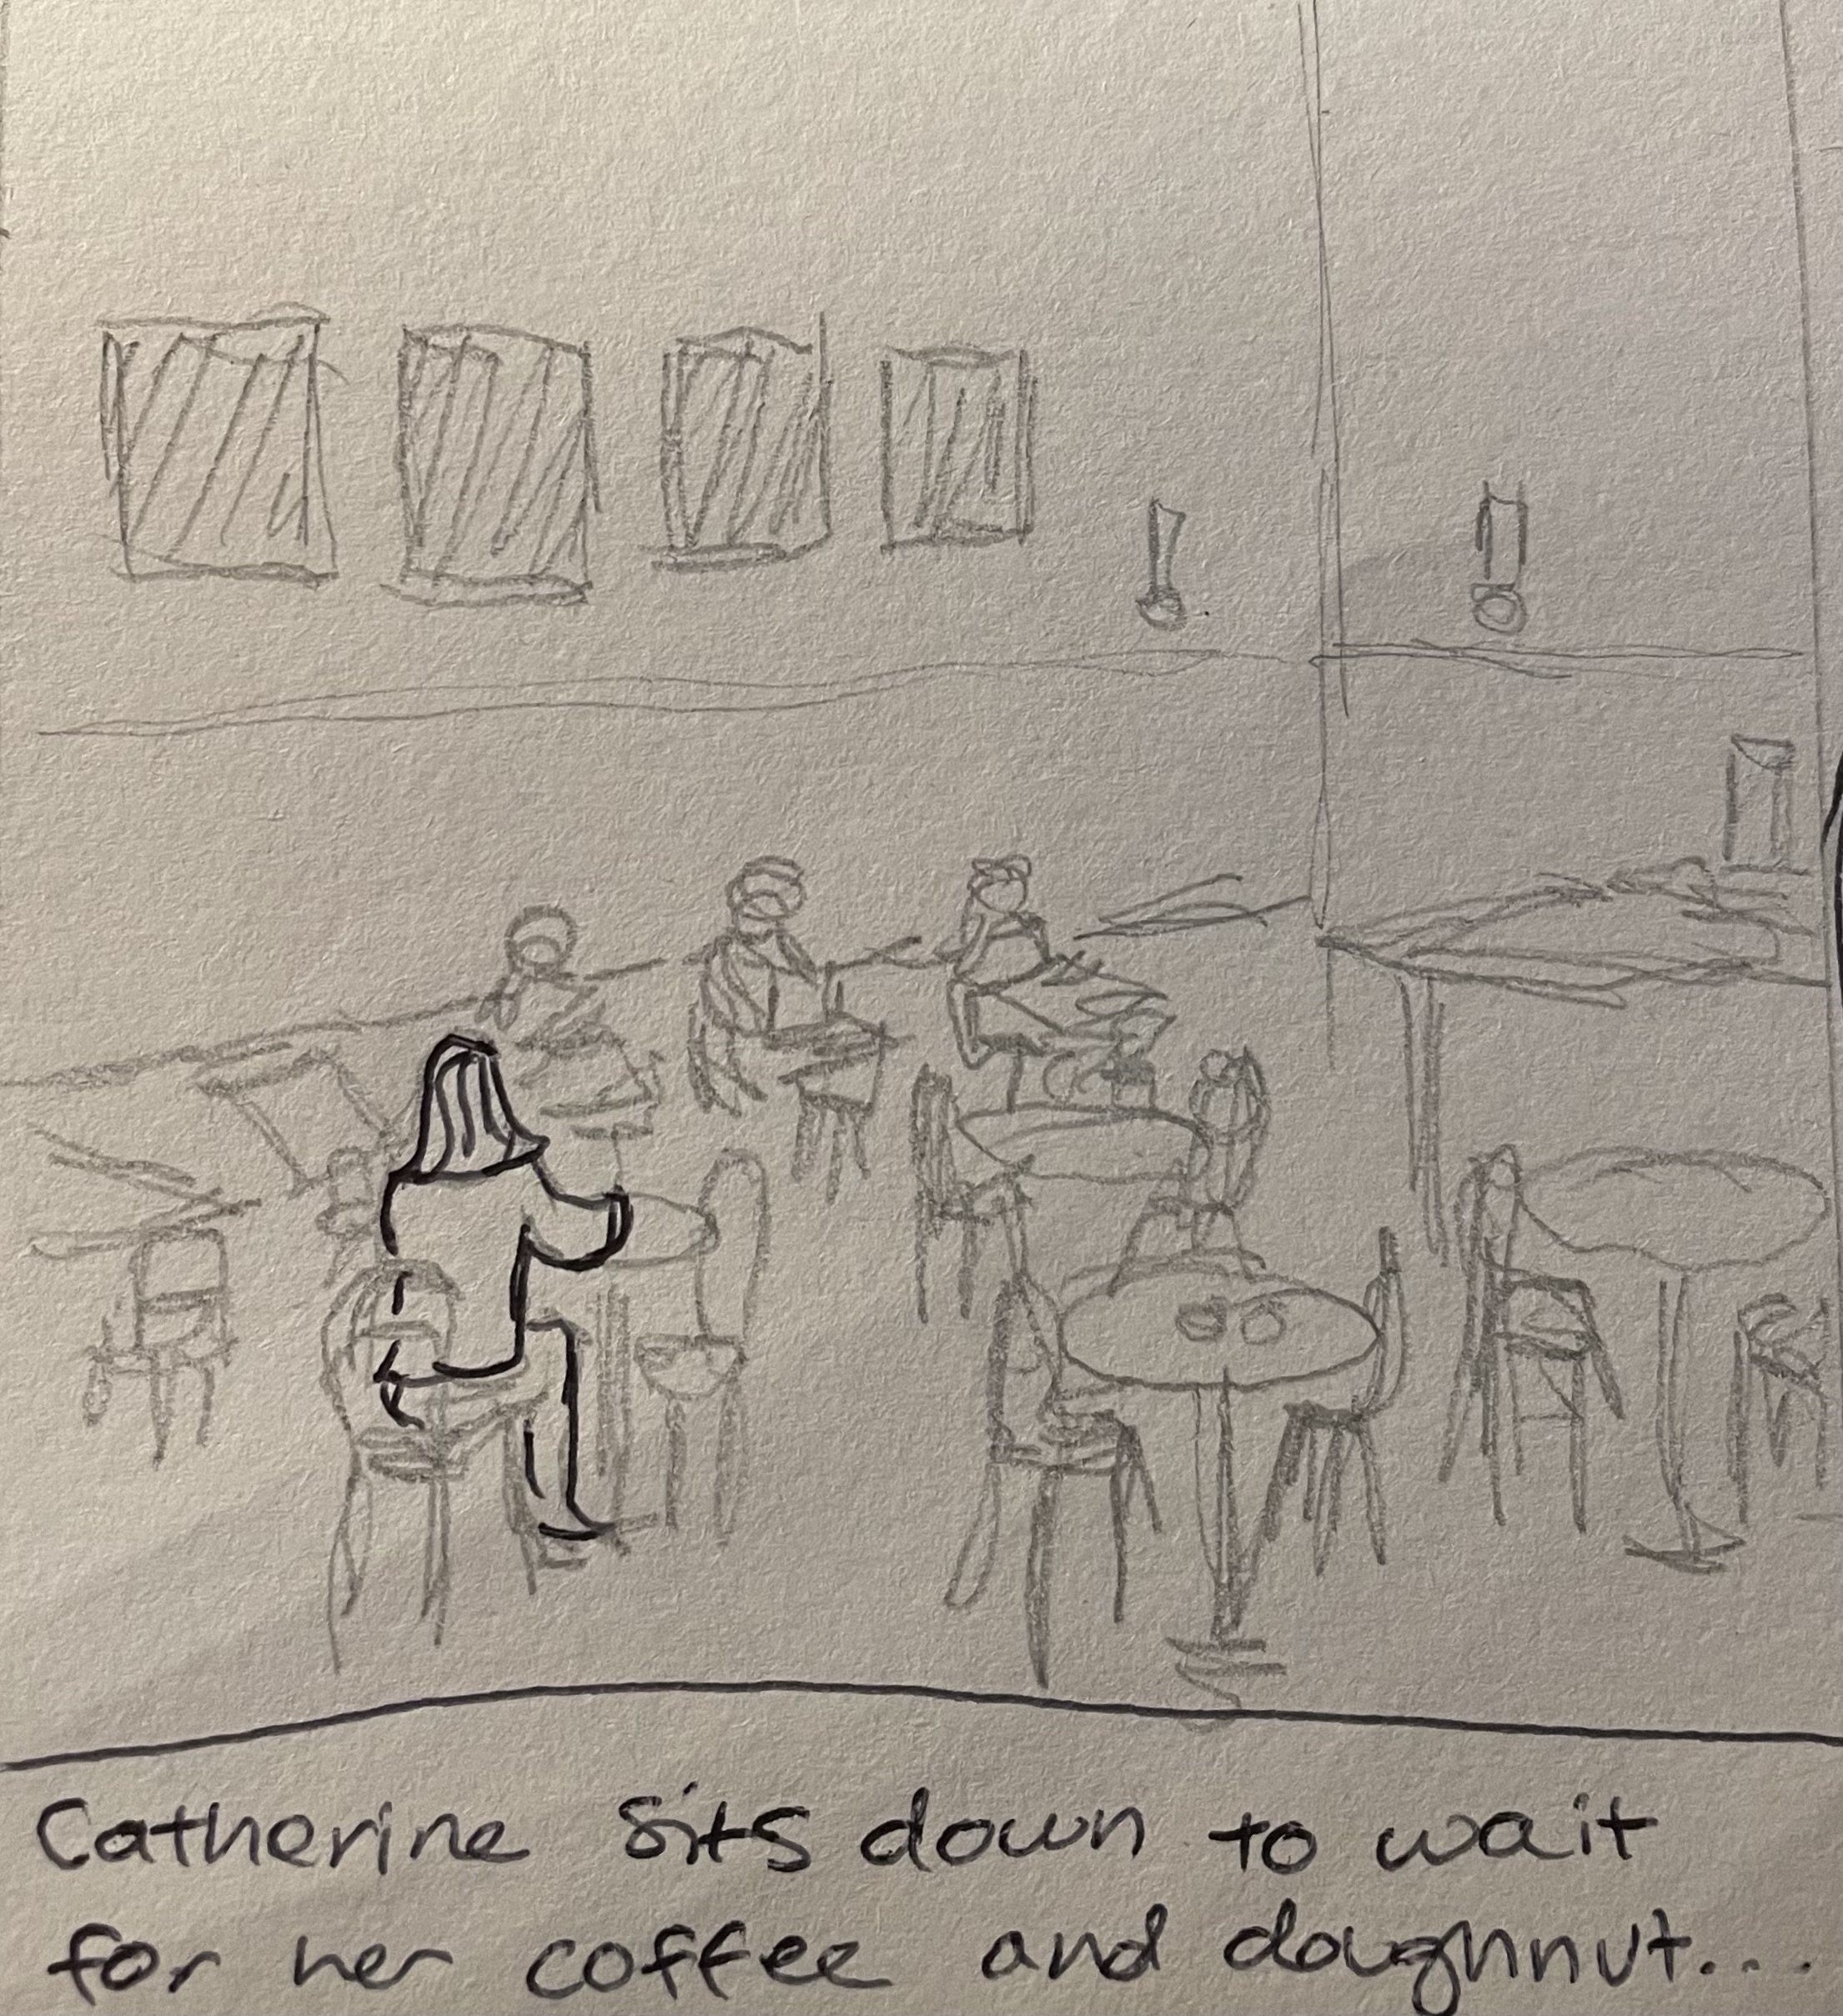 Catherine sits down to wait
for her coffee and doughnut...